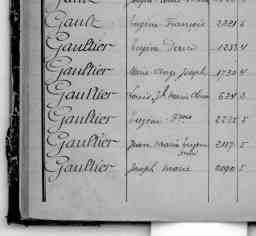 Gault Eugène François 2221 6
Gaultier Eugène 1253 4
Gaultier Marie Ange Joseph 1730 4
Gaultier Louis Marie 624 3
Gaultier Eugène 2222 5
Gaultier Jean Marie 2117 5
Gaultier Joseph Marie 2090 5